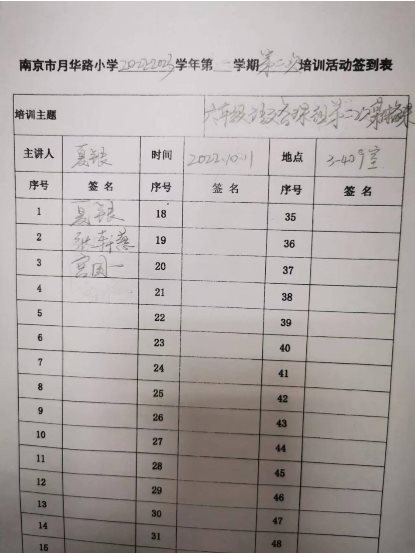 南京市月华路小学2022-2023学年第一学期第二次培训活动签到表
培训主题 六年级语文备课组第二次
主讲人 夏银 时间 2022.10.11 地点 3-409室
序号 签 名 序号 签 名 序号 签 名
1 夏银 18 35
2 19 36
3 宫国一 20 37
4 21 38
5 22 39
6 23 40
7 24 41
8 25 42
9 26 43
10 27 44
11 28 45
12 29 46
13 30 47
14 31 48
15